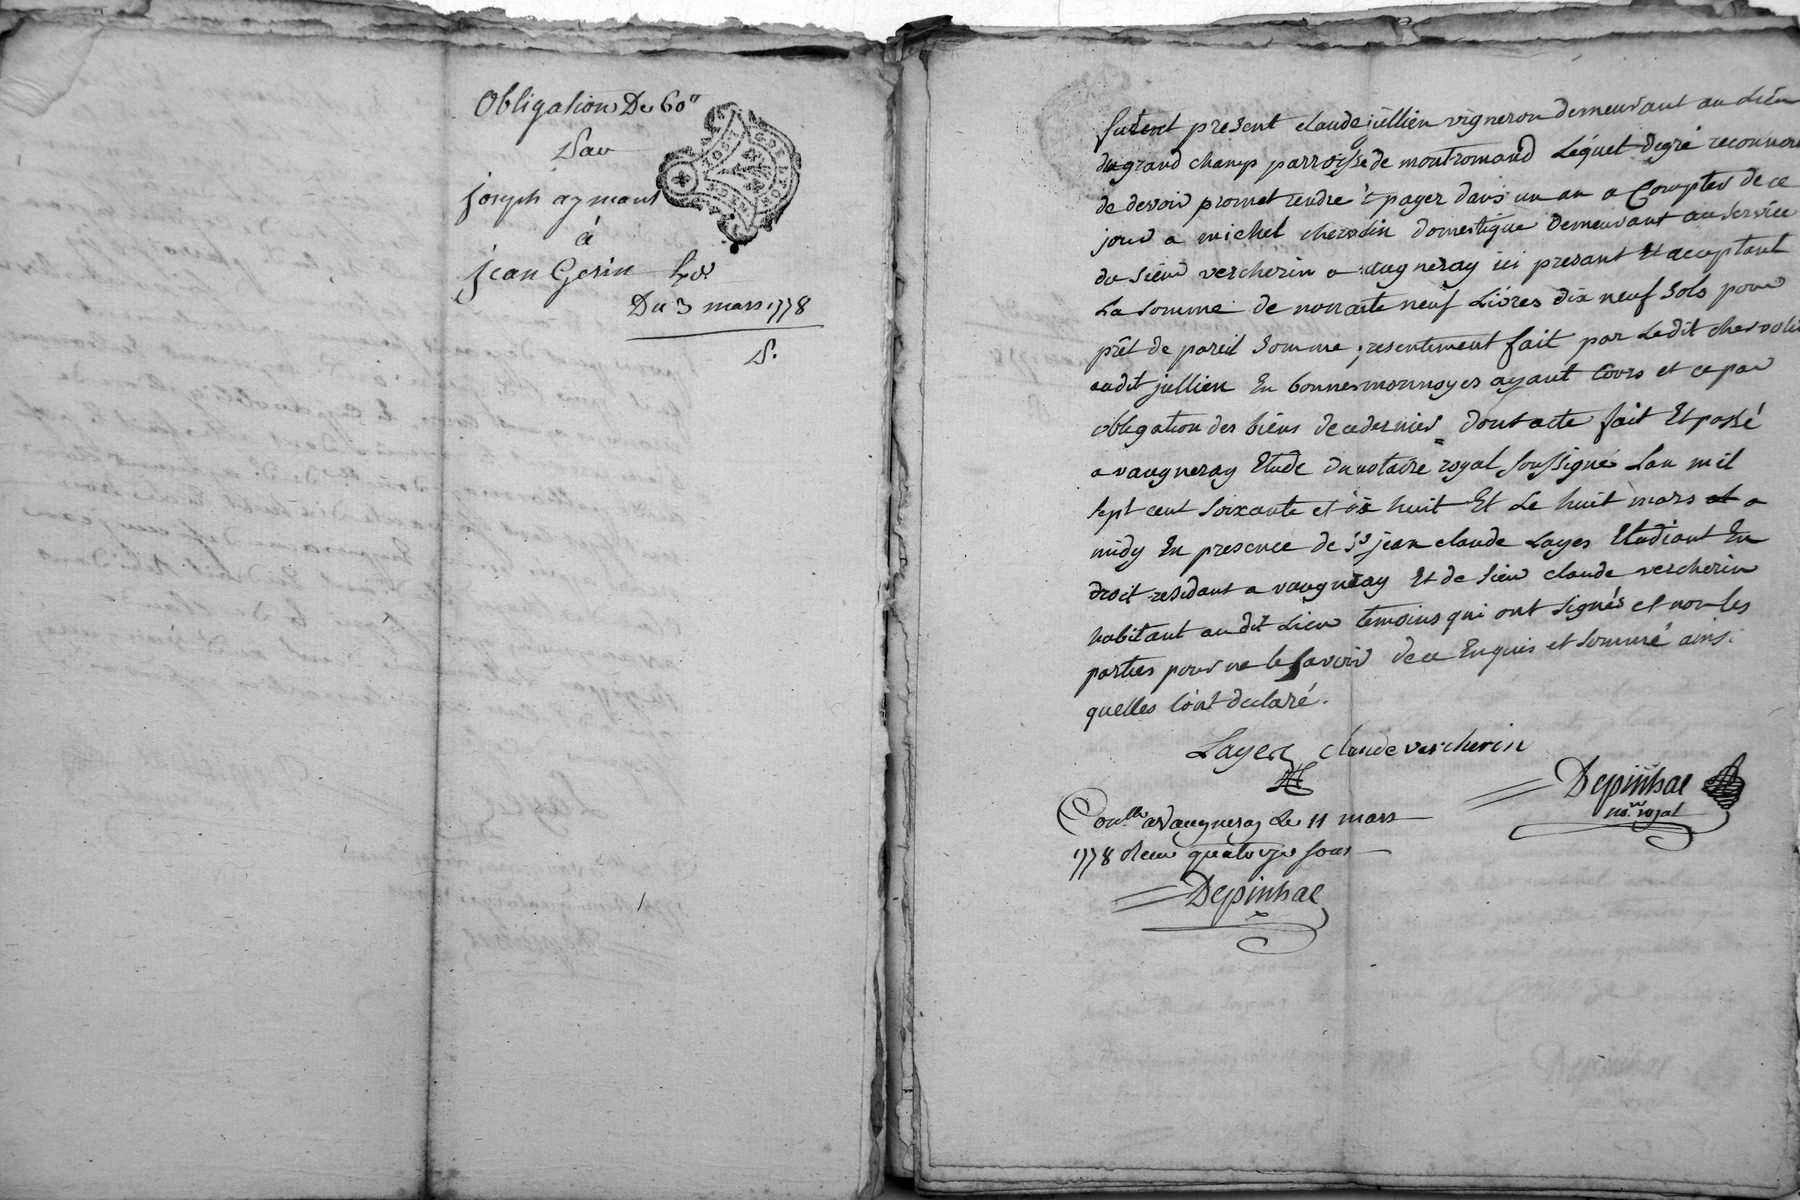 Obligation De 60ᵗᵗ
Par
joseph aymard
à
jean Gerin
Du 3 mars 1778
S.
furent present claude jullien vigneron demeurant au Lieu
du grand champ parroisse de montromand Lequel degré reconnoit
de devoir promet rendre et payer dans un an a Compter de ce
jour a michel domestique demeurant au service
du sieur vercherin a vaugneray ici presant Et acceptant
La somme de nonante neuf Livres dix neuf sols pour
prêt de pareil somme presentement fait par Ledit
audit jullien En bonnes monnoyes ayant Cours et ce par
obligation des biens de ce dernier dont acte fait Et passé
a vaugneray Etude du notaire royal soussigné Lan mil
sept cent soixante et dix huit Et Le huit mars a
midy En presence de Sr jean claude Layes Etudiant En
droit residant a vaugneray Et de sieur claude vercherin
habitant au dit Lieu temoins qui ont signés et non les
parties pour ne le savoir de ce Enquis et sommé ainsi
quelles l'ont declaré.
Layes claude vercherin
Depinhac
no.re royal
Conllé a Vaugneray Le 11 mars
1778 Reçu quatorze sous
Depinhac